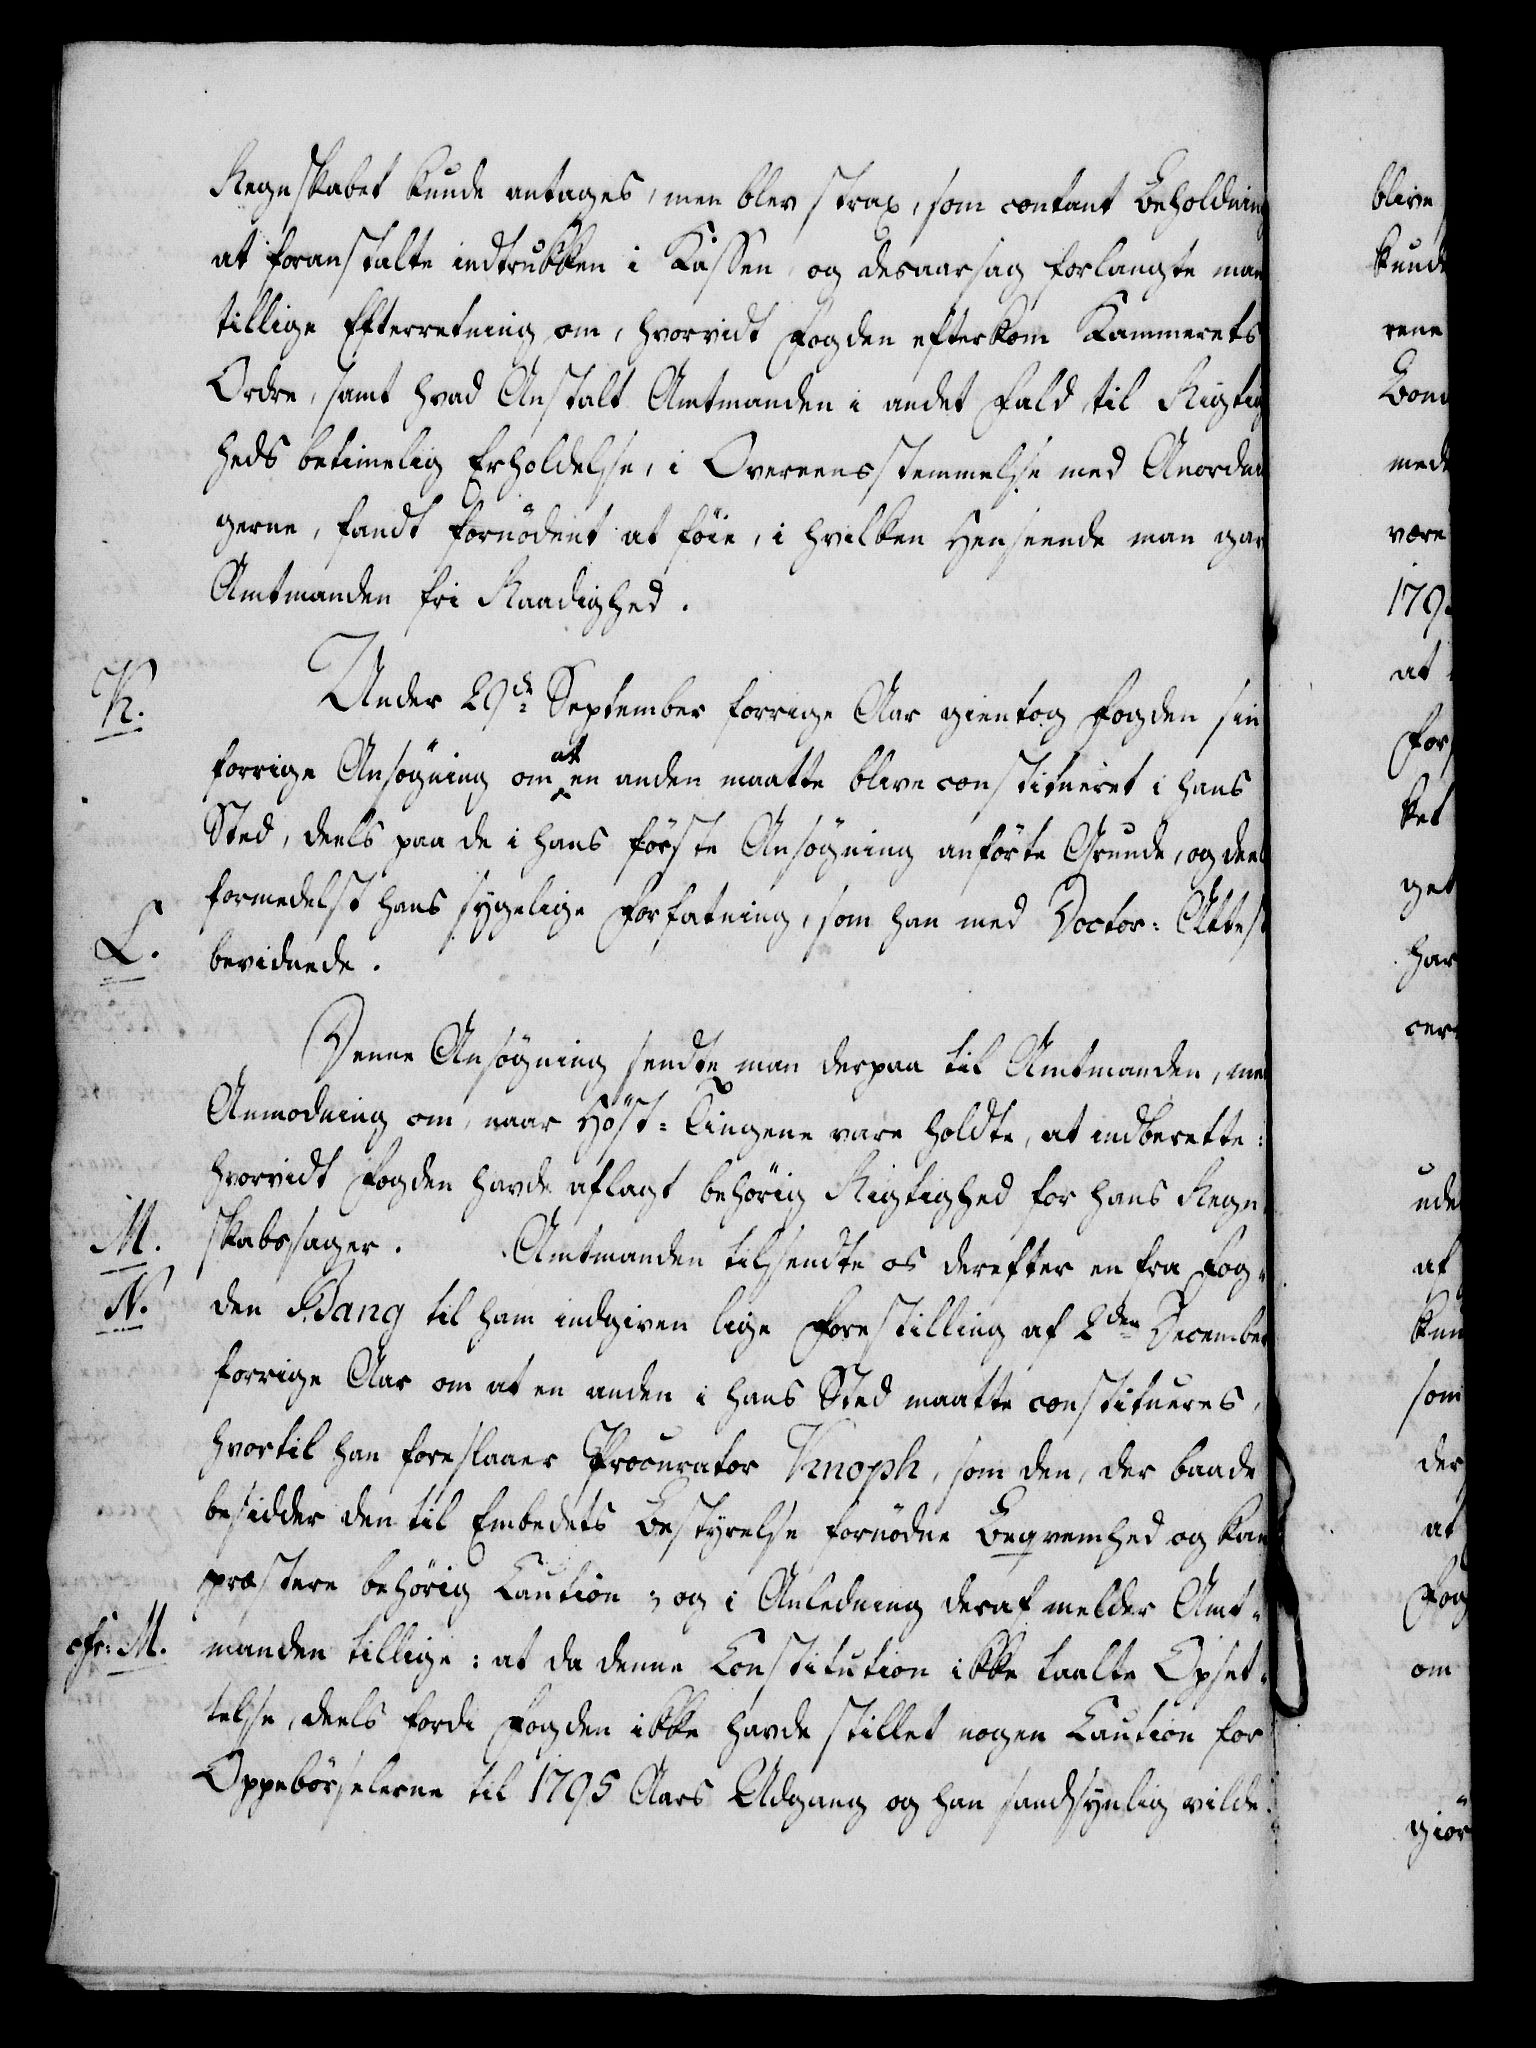 Regnskabet kunde antages, men blev strax, som contant Beholdning
at foranstalte indtrukken i Kassen, og desaarsag forlangte man
tillige Efterretning om, hvorvidt Fogden efterkom Kammerets
Ordre, samt hvad Anstalt Amtmanden i andet Fald til Rigtig
heds betimelig Erholdelse, i Overeensstemmelse med Anordnin
gerne, fandt fornödent at föie, i hvilken Henseende man gav
Amtmanden fri Raadighed.
K. Under 29de September forrige Aar gientog Fogden sin
forrige Ansögning om at en anden maatte blive constitueret i hans
Sted, deels paa de i hans förste Ansögning anförte Grunde, og deels
formedelst hans sygelige Forfatning, som han med Doctor: Attest
L. bevidnede.
Denne Ansögning sendte man derpaa til Amtmanden, med
Anmodning om, naar Höst-Tingene vare holdte, at indberette:
hvorvidt Fogden havde aflagt behörig Rigtighed for hans Regn
M. skabssager. Amtmanden tilsendte os derefter en fra Fog-
N. den Bang til ham indgiven lige Forestilling af 2den December
forrige Aar om at en anden i hans Sted maatte constitueres,
hvortil han foreslaaer Procurator Knoph, som den, der baade
besidder den til Embedets Bestyrelse fornödne Beqvemhed og kan
præstere behörig Caution; og i Anledning deraf melder Amt-
cfr: M. manden tillige: at da denne Constitution ikke taalte Opset-
telse, deels fordi Fogden ikke havde stillet nogen Caution for
Oppebörselerne til 1795 Aars Udgang og han sandsynlig vilde
blive
kunde
rene
Bond
med
være
179
at
for
ket
get
har
cer
ude
af
kun
som
der
at
Fog
om
giör